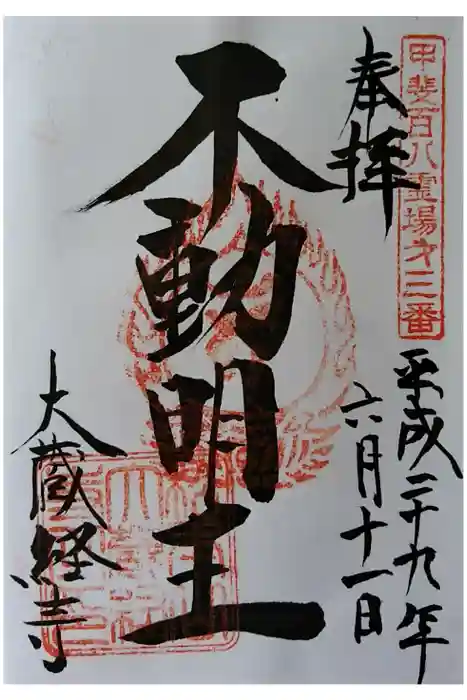 甲斐百八霊場才三番
奉拝
平成二十九年
六月十一日
不動明王
大蔵経寺